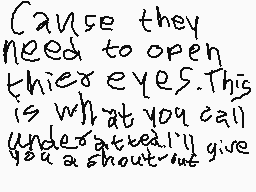 Cause they
need to open
thier eyes. This
is what you call
underatted. I'll give
you a shout-out